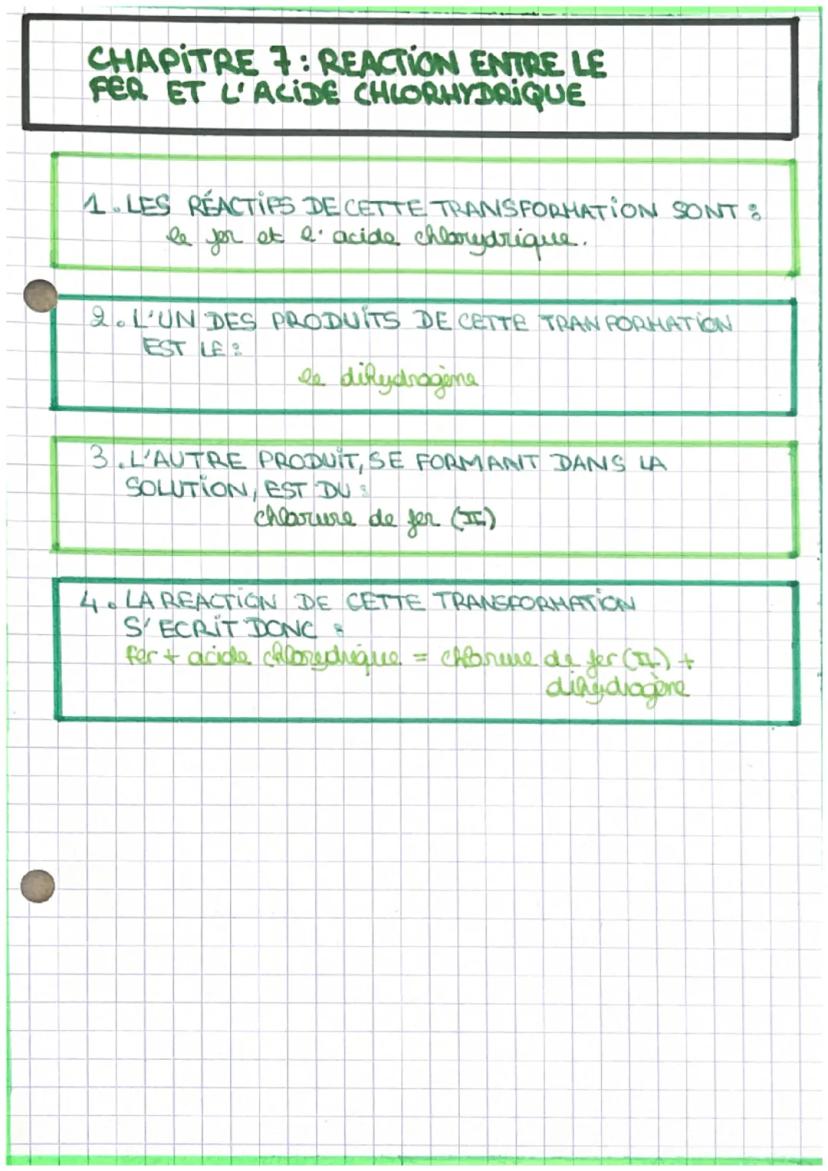 CHAPITRE 7 : REACTION ENTRE LE
FER ET L'ACIDE CHLORHYDRIQUE
1. LES RÉACTIFS DE CETTE TRANSFORMATION SONT :
le fer et l'acide chlorydrique.
2. L'UN DES PRODUITS DE CETTE TRANFORMATION
EST LE :
le dihydrogène
3. L'AUTRE PRODUIT, SE FORMANT DANS LA
SOLUTION, EST DU :
chlorure de fer (II)
4. LA REACTION DE CETTE TRANSFORMATION
S'ECRIT DONC :
fer + acide chlorydrique = chlorure de fer (II) +
dihydrogène